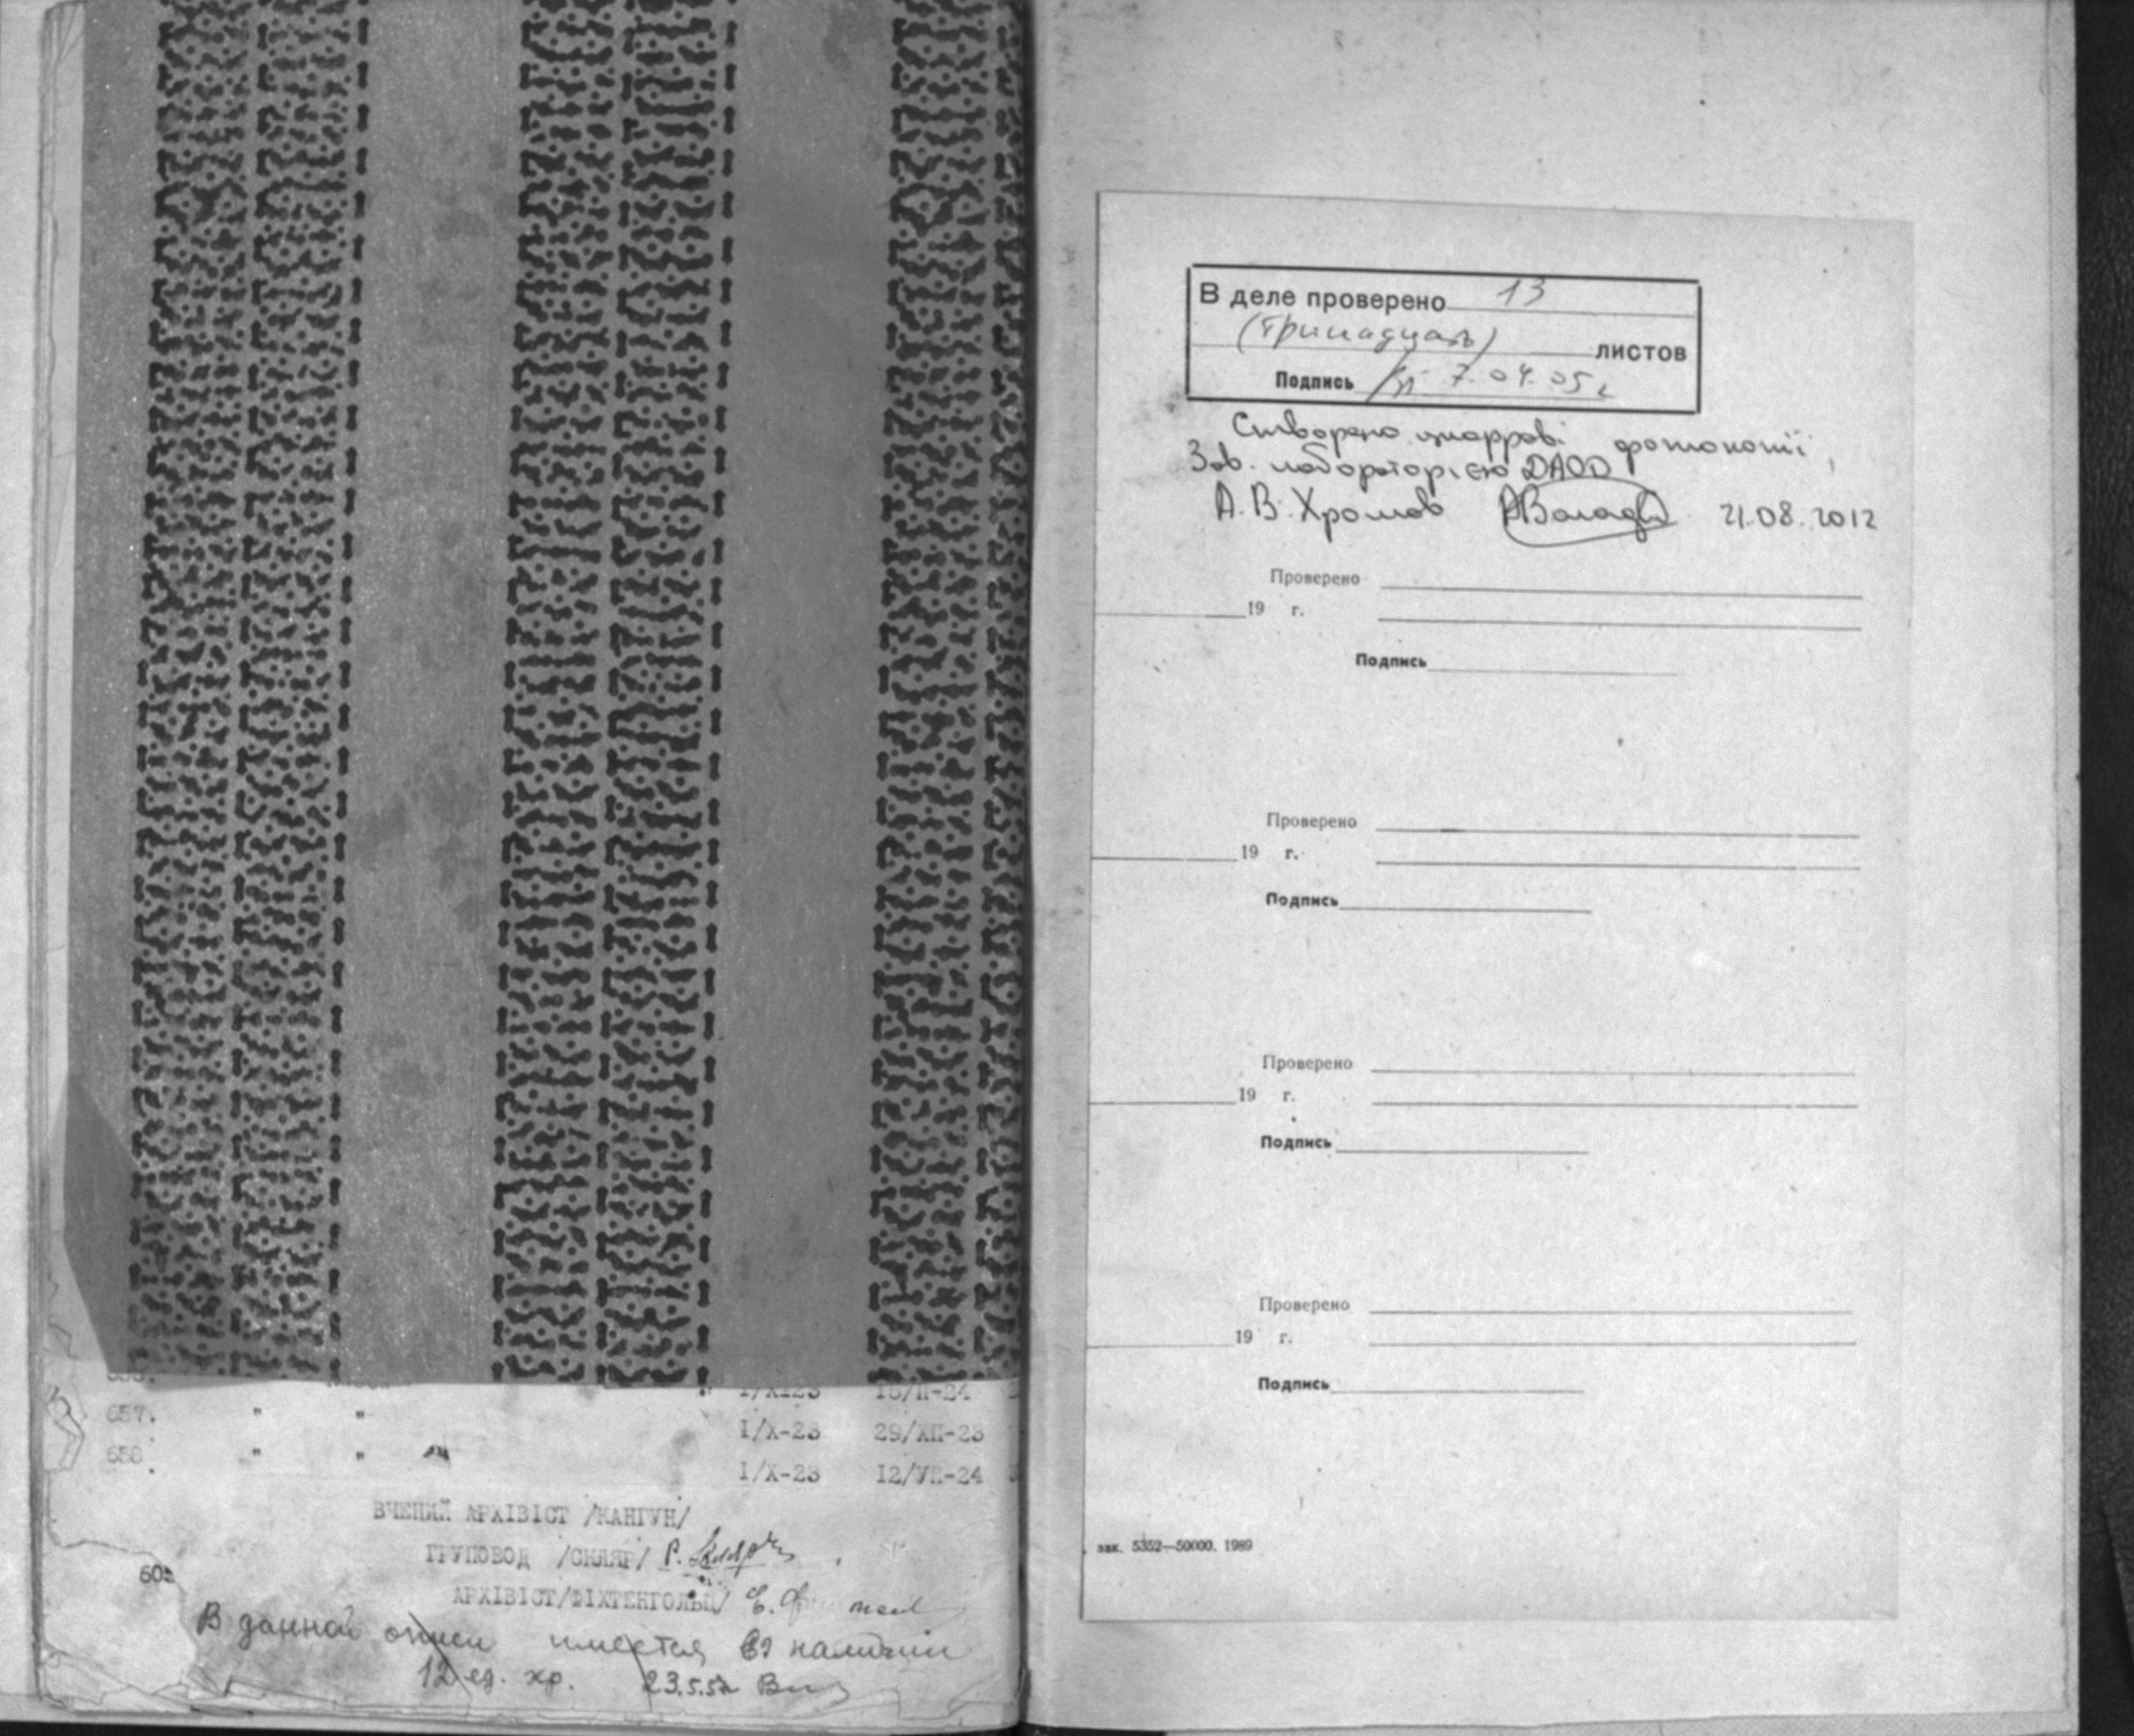 I/XI23 18/П-24
657. " "
I/X-23 29/ХП-23
658. " "
I/X-23 12/УП-24
ВЧЕНИЙ АРХІВІСТ /КАНГУН/
ГРУПОВОД /СКЛЯР/ Р. Скляр
АРХІВІСТ/ФІХТЕНГОЛЬЦ/
60
В данной описи имеется в наличии
12 ед. хр. 23.5.52
В деле проверено 13
(тринадцать) листов
Подпись 7.04.05 г
Створено цифрові фотокопії,
Зав. лабораторією ДАОО
А.В. Хромов 21.08.2012
Проверено
19 г.
Подпись
Проверено
19 г.
Подпись
Проверено
19 г.
Подпись
Проверено
19 г.
Подпись
зак. 5352—50000. 1989